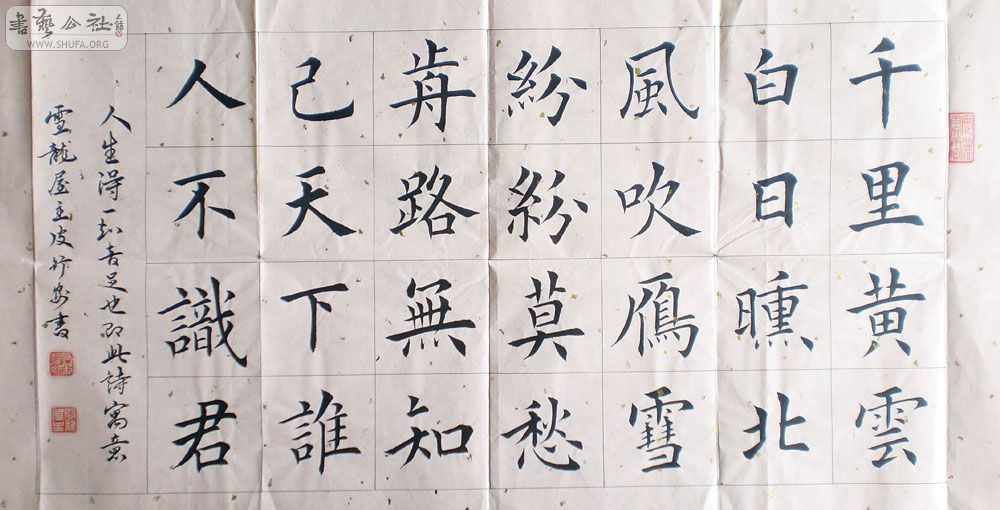 書藝公社
WWW.SHUFA.ORG
千里黄雲
白日曛北
風吹鴈雪
紛紛莫愁
歬路無知
己天下誰
人不識君
人生得一知音足也即此詩寓意
雪龍屋主皮書